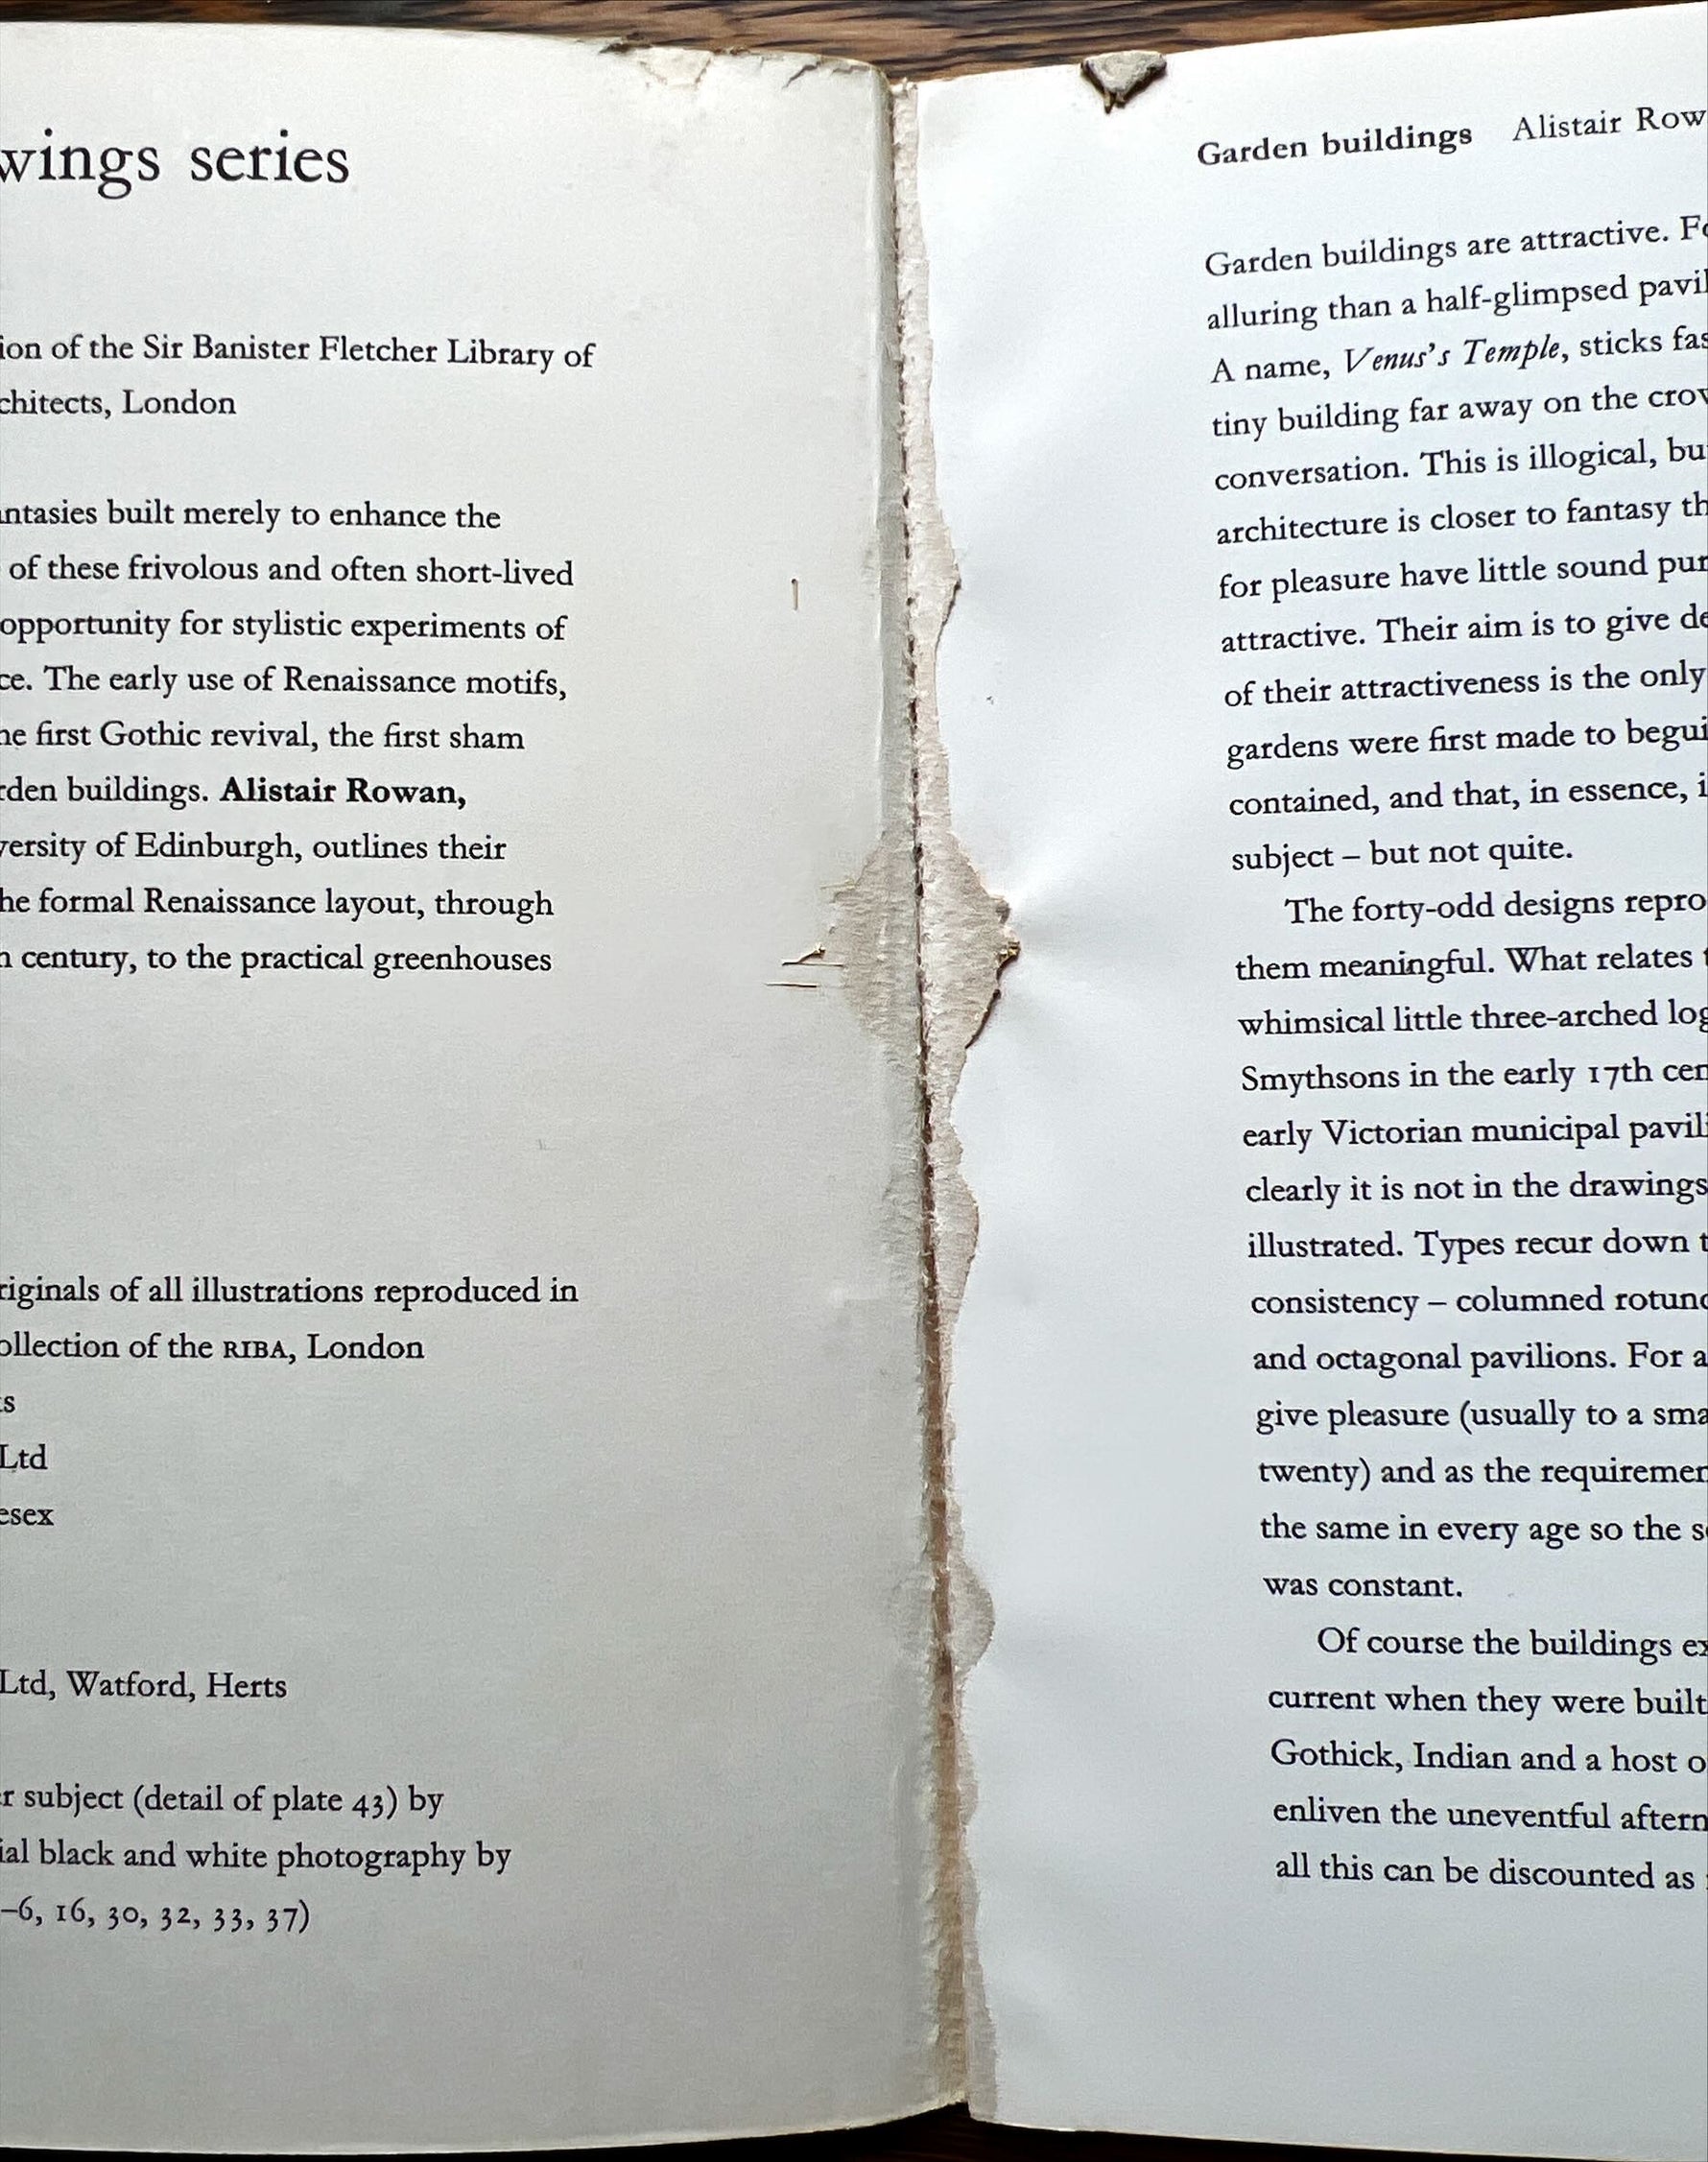 series
of the Sir Banister Fletcher Library of
London
built merely to enhance the
of these frivolous and often short-lived
opportunity for stylistic experiments of
The early use of Renaissance motifs,
first Gothic revival, the first sham
buildings. Alistair Rowan,
of Edinburgh, outlines their
formal Renaissance layout, through
century, to the practical greenhouses
of all illustrations reproduced in
of the RIBA, London
Ltd
Ltd, Watford, Herts
subject (detail of plate 43) by
black and white photography by
–6, 16, 30, 32, 33, 37)
Garden buildings Alistair
Garden buildings are attractive.
alluring than a half-glimpsed
A name, Venus's Temple, sticks
tiny building far away on the
conversation. This is illogical,
architecture is closer to fantasy
for pleasure have little sound
attractive. Their aim is to give
of their attractiveness is the only
gardens were first made to
contained, and that, in essence,
subject – but not quite.
The forty-odd designs
them meaningful. What relates
whimsical little three-arched
Smythsons in the early 17th
early Victorian municipal
clearly it is not in the drawings
illustrated. Types recur down
consistency – columned
and octagonal pavilions. For a
give pleasure (usually to a
twenty) and as the
the same in every age so the
was constant.
Of course the buildings
current when they were built
Gothick, Indian and a host
enliven the uneventful
all this can be discounted as